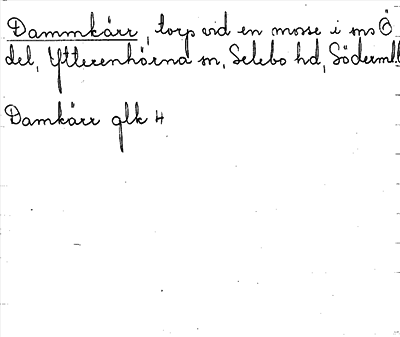 Dammkärr, torp vid en mosse i sns Ö
del, Ytterenhörna sn, Selebo hd, Söderml.
Damkärr glk 4